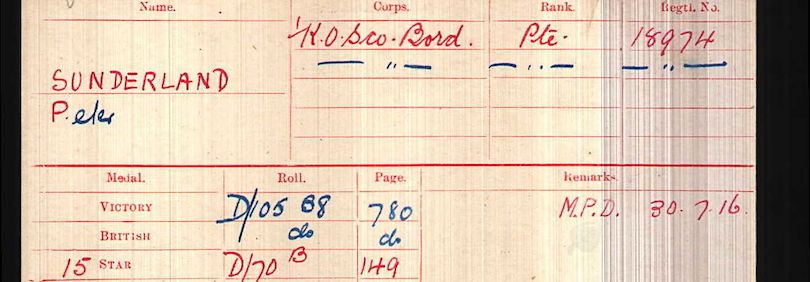 Name. Corps. Rank. Regtl. No.
1/K.O.Sco.Bord. Pte. 18974
— " — — " — — " —
SUNDERLAND
Peter
Medal. Roll. Page. Remarks.
VICTORY D/105 B8 780 M.P.D. 30.7.16.
BRITISH do do
15 STAR D/70 B 149